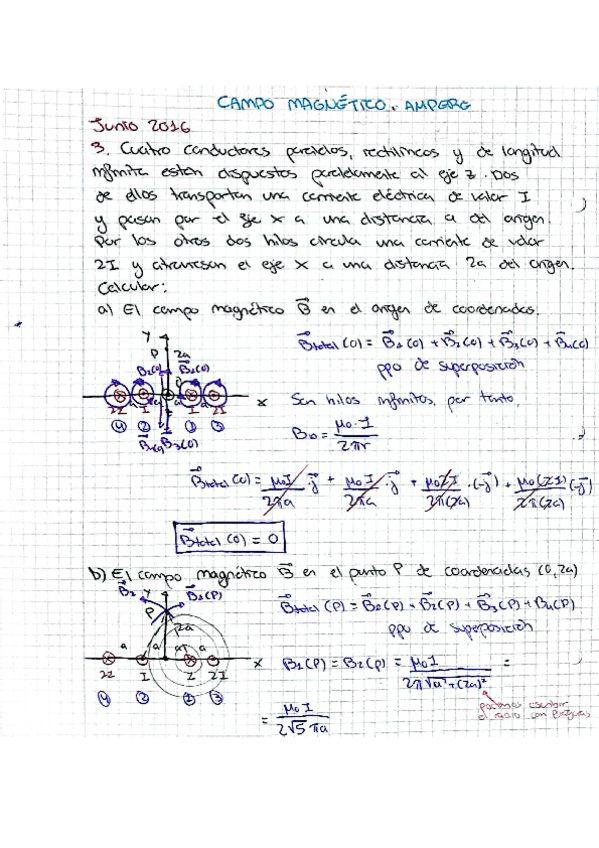 CAMPO MAGNÉTICO. AMPERE
Junio 2016
3. Cuatro conductores paralelos, rectilíneos y de longitud
infinita están dispuestos paralelamente al eje z. Dos
de ellos transportan una corriente eléctrica de valor I
y pasan por el eje X a una distancia a del origen.
Por los otros dos hilos circula una corriente de valor
2I y atraviesan el eje X a una distancia 2a del origen.
Calcular:
a) El campo magnético B⃗ en el origen de coordenadas.
B⃗total (0) = B⃗1(0) + B⃗2(0) + B⃗3(0) + B⃗4(0)
ppo de superposición
Y
P
2a
B⃗2(0)
B⃗1(0)
x
2I I I 2I
④ ② ① ③
B⃗4(0) B⃗3(0)
Son hilos infinitos, por tanto,
B∞ = μ0·I / 2πr
B⃗total (0) = μ0I / 2πa · j⃗ + μ0·I / 2πa · j⃗ + μ0·2I / 2π(2a) · (-j⃗) + μ0(2I) / 2π(2a) (-j⃗)
B⃗total (0) = 0
b) El campo magnético B⃗ en el punto P de coordenadas (0,2a)
B⃗2 Y B⃗1(P)
P
2a
a a a a
x
2I I I 2I
④ ② ① ③
B⃗total (P) = B⃗1(P) + B⃗2(P) + B⃗3(P) + B⃗4(P)
ppo de superposición
B1(P) = B2(P) = μ0I / 2π√a²+(2a)² =
podemos escribir
el radio con Pitágoras
= μ0 I / 2√5 πa